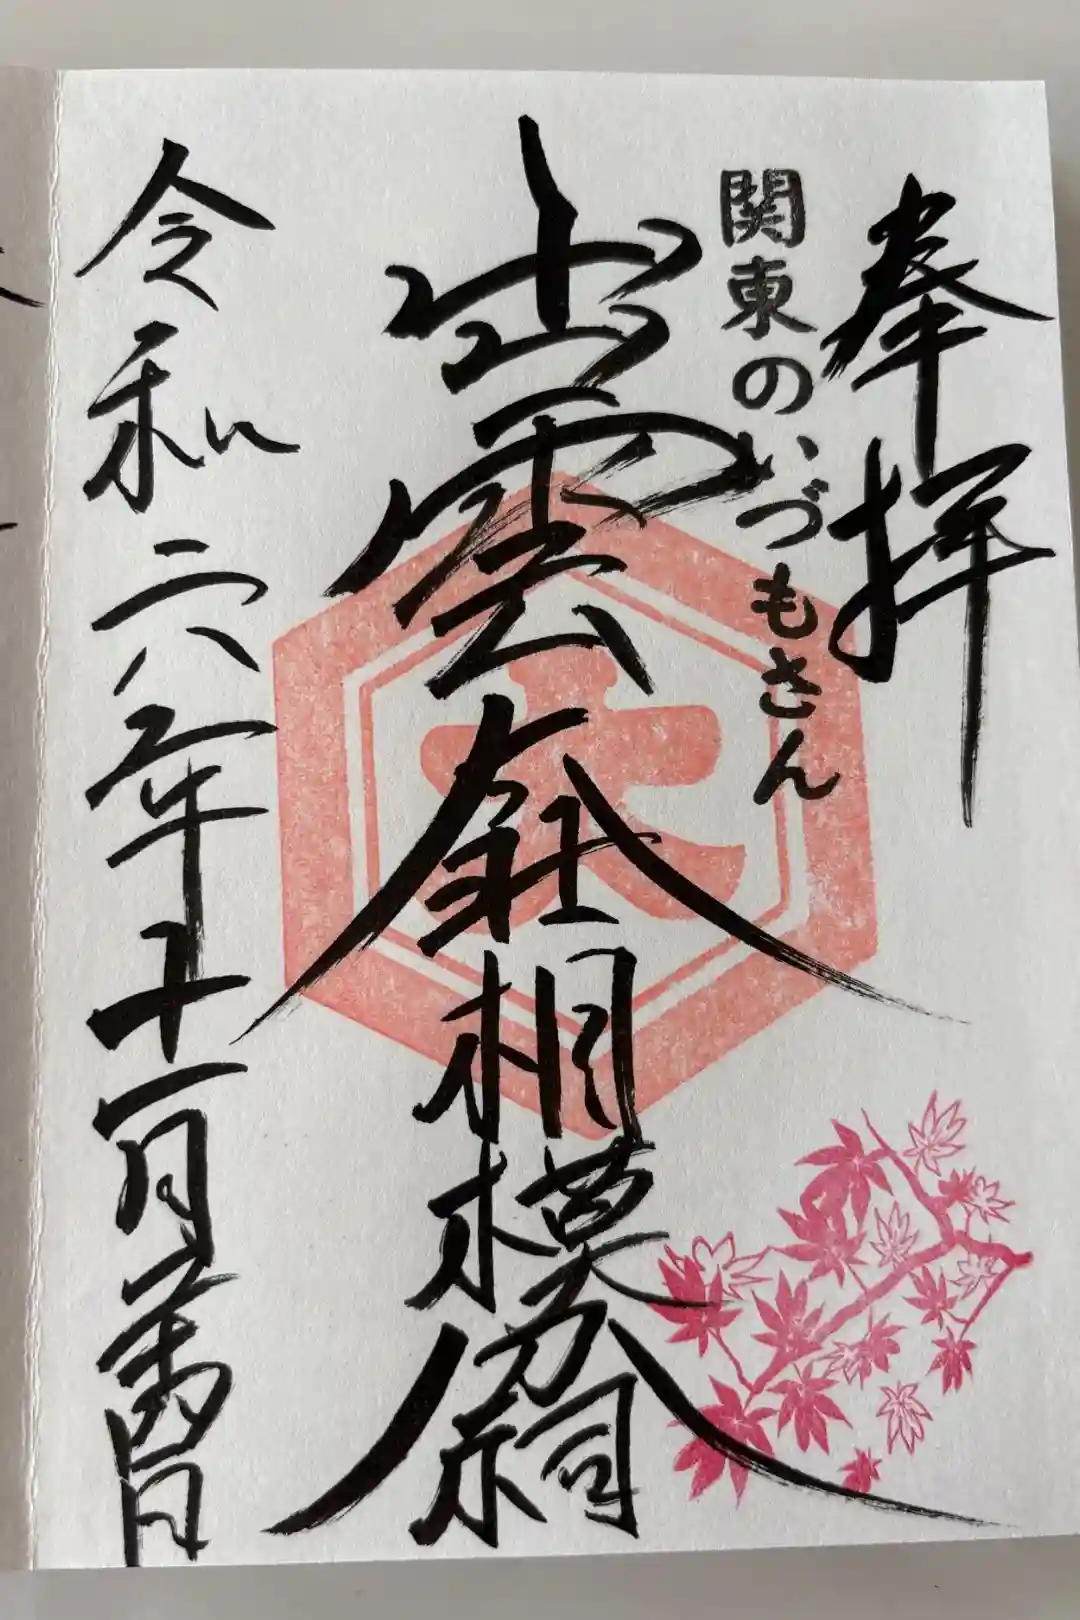 奉拝
関東のいづもさん
出雲大社相模分祠
大
令和六年十一月日